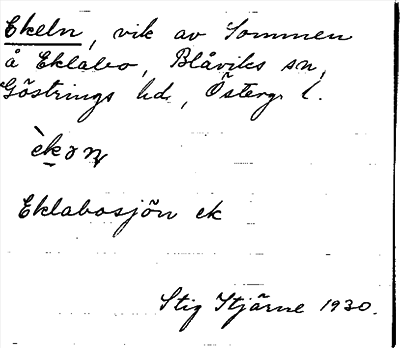 Ekeln, vik av Sommen
å Eklabo, Blåviks sn,
Göstrings hd, Österg. l.
Eklabosjön ek
Stig Stjärne 1930.